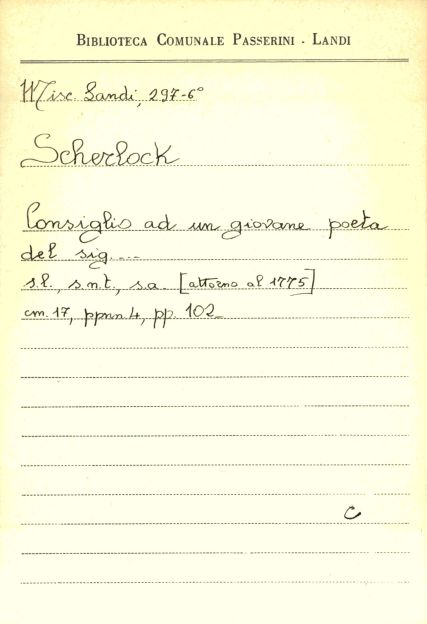 BIBLIOTECA COMUNALE PASSERINI - LANDI
Misc. Landi, 297-6°
Scherlock
Consiglio ad un giovane poeta
del sig....
s.l., s.n.t., s.a. [attorno al 1775]
cm. 17, ppnn. 4, pp. 102
C